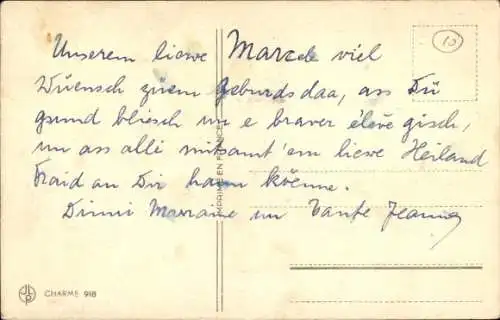 Unserem liewe Marcele viel
Wüensch züem Geburdsdaa, ass Dü
gsund bliesch un e braver élève gisch,
un ass alli mitsamt 'em liewe Heiland
Fraid an Dir hann kœnne.
Dinni Marraine un Tante Jeanne
10
IMPRIMÉ EN FRANCE
CHARME 918